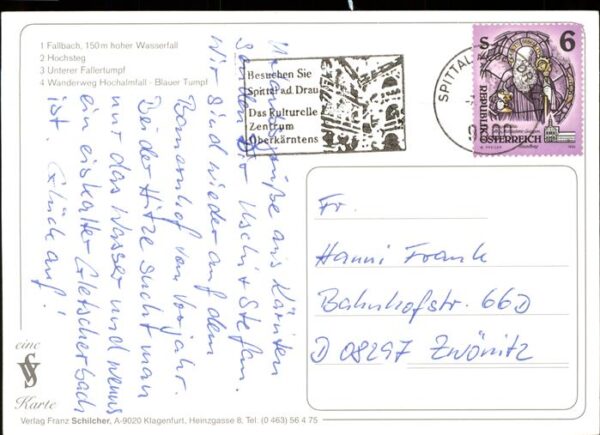 1 Fallbach, 150 m hoher Wasserfall
2 Hochsteg
3 Unterer Fallertumpf
4 Wanderweg Hochalmfall - Blauer Tumpf
Besuchen Sie
Spittal ad Drau
Das Kulturelle
Zentrum
Oberkärntens
SPITTAL
S 6
REPUBLIK
ÖSTERREICH
Urlaubsgrüße aus Kärnten
senden Uschi + Stefan.
Wir sind wieder auf dem
vom Vorjahr.
Bei der Hitze sucht man
nur das Wasser und wenns
ein eiskalter Gletscherbach
ist. Glück auf!
Fr.
Hanni Frank
Bahnhofstr. 66D
D 08297 Zwönitz
eine
Karte
Verlag Franz Schilcher, A-9020 Klagenfurt, Heinzgasse 8, Tel. (0 463) 56 4 75